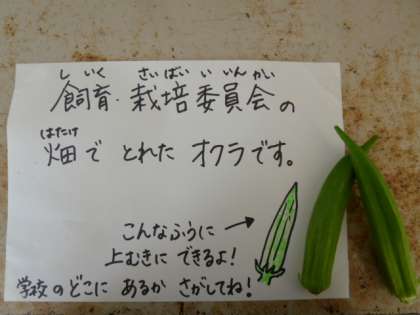 しいく さいばい いいんかい
飼育・栽培委員会の
はたけ
畑で とれた オクラです。
こんなふうに
上むきに できるよ!
学校の どこに あるか さがしてね!